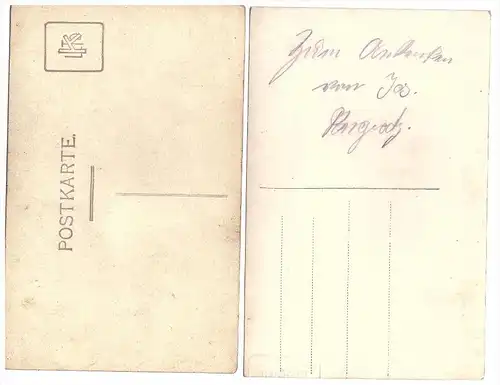 POSTKARTE.
Zum Andenken
von